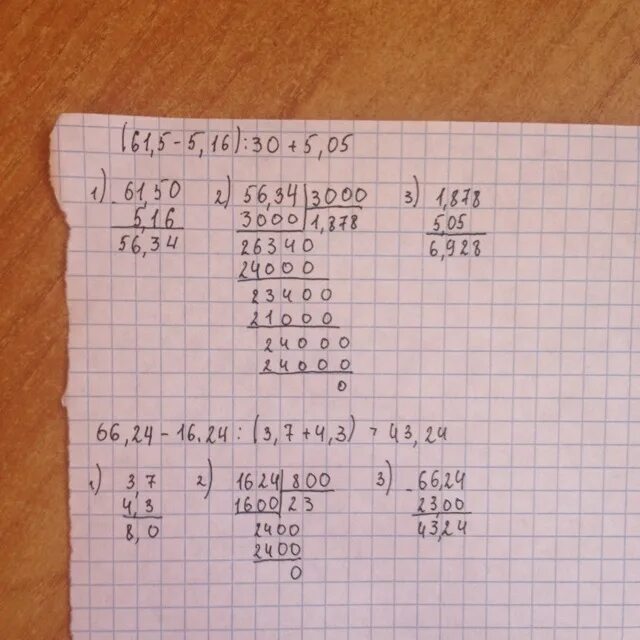 (61,5-5,16):30+5,05
1) 61,50
- 5,16
56,34
2) 56,34 | 3000
3000 | 1,878
26340
24000
23400
21000
24000
24000
0
3) 1,878
5,05
6,928
66,24-16.24:(3,7+4,3) = 43,24
1) 3,7
4,3
8,0
2) 1624 | 800
1600 | 23
2400
2400
0
3) - 66,24
2300
43,24